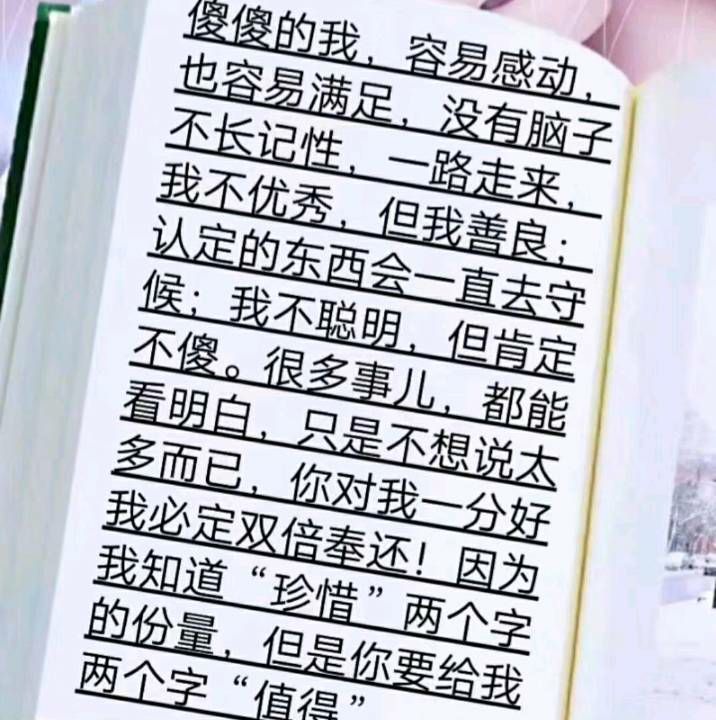 傻傻的我，容易感动，
也容易满足，没有脑子
不长记性，一路走来，
我不优秀，但我善良；
认定的东西会一直去守
候；我不聪明，但肯定
不傻。很多事儿，都能
看明白，只是不想说太
多而已，你对我一分好
我必定双倍奉还！因为
我知道“珍惜”两个字
的份量，但是你要给我
两个字“值得”